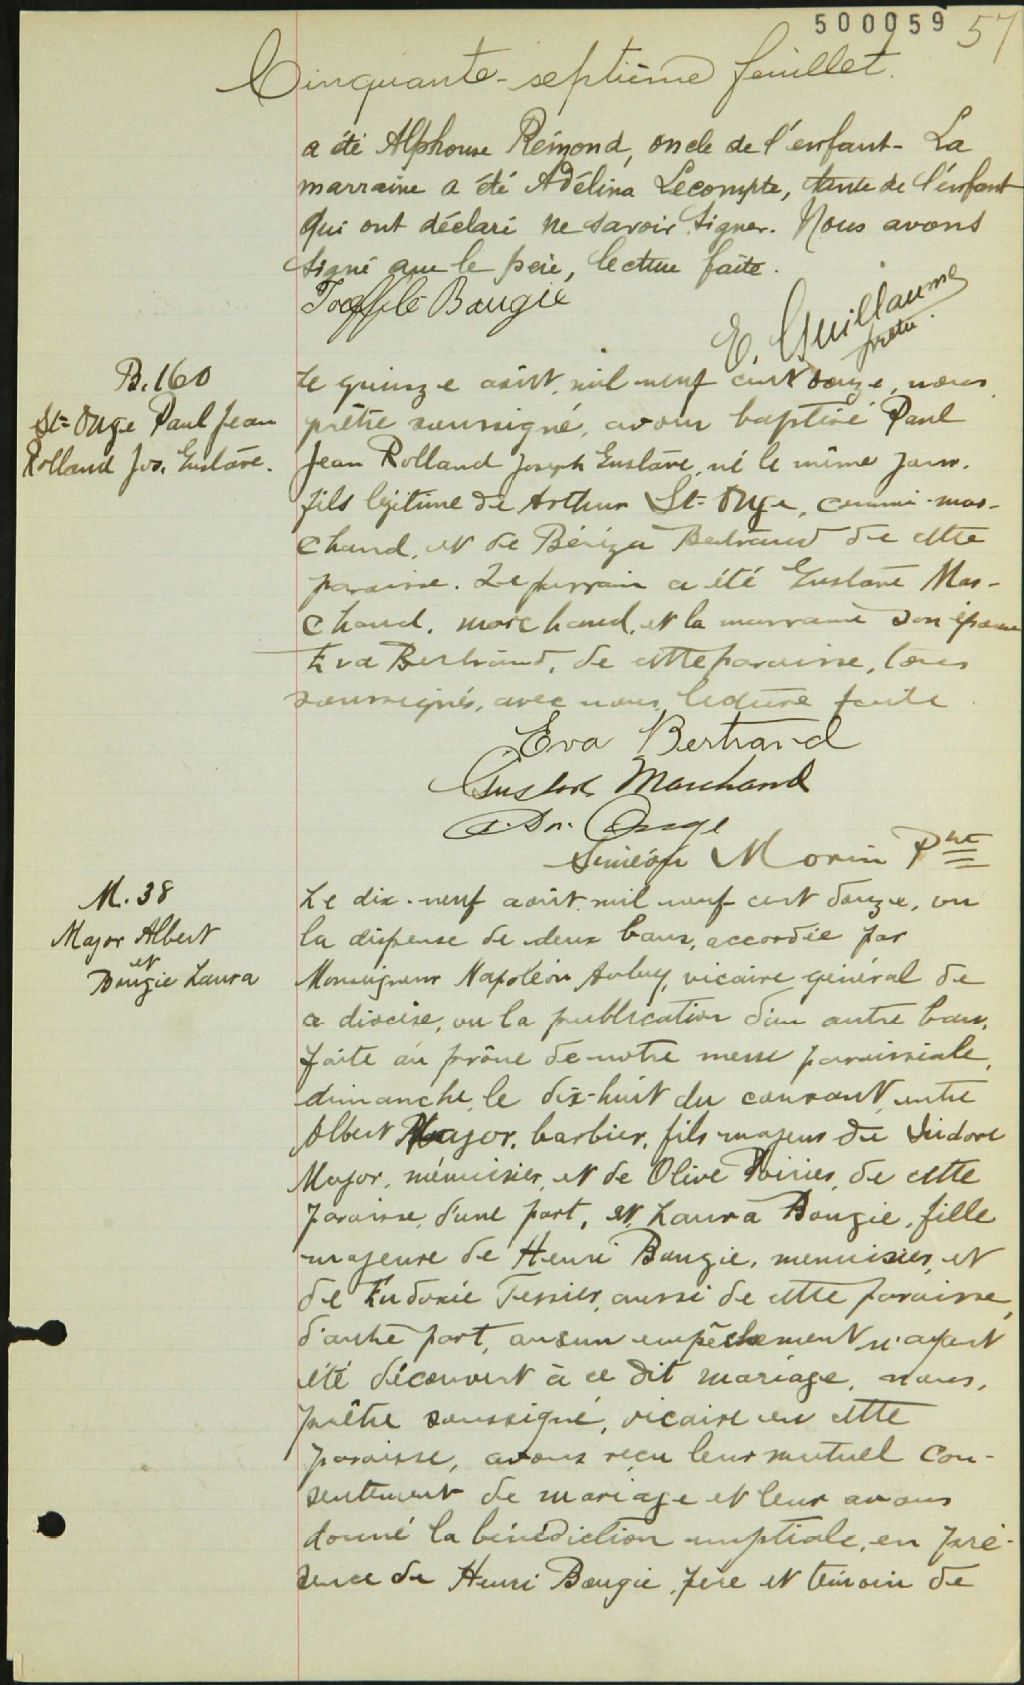 500059 57
Cinquante-septième feuillet.
a été Alphonse Rémond, oncle de l'enfant - La
marraine a été Adélina Lecompte, tante de l'enfant
qui ont déclaré ne savoir signer. Nous avons
signé avec le père, lecture faite.
Bougie
E. Guillaume
prêtre.
B. 160
St-Onge Paul Jean
Rolland Jos. Gustave.
Le quinze août mil neuf cent douze, nous
prêtre soussigné, avons baptisé Paul
Jean Rolland Joseph Gustave, né le même jour,
fils légitime de Arthur St-Onge, commi-mar-
chand, et de Bertrand de cette
paroisse. Le parrain a été Gustave Mar-
chand, marchand, et la marraine son épouse
Eva Bertrand, de cette paroisse, tous
soussignés, avec nous, lecture faite.
Eva Bertrand
Gustave Marchand
A. St. Onge
Siméon Morin Ptre
M. 38
Major Albert
et
Bougie Laura
Le dix-neuf août mil neuf cent douze, vu
la dispense de deux bans, accordée par
Monseigneur Napoléon, vicaire général de
ce diocèse, vu la publication d'un autre ban,
faite au prône de notre messe paroissiale,
dimanche, le dix-huit du courant, entre
Albert Major, barbier, fils majeur de Isidore
Major, ménuisier, et de Olive Poirier, de cette
paroisse, d'une part, et Laura Bougie, fille
majeure de Henri Bougie, menuisier, et
de Eudoxie Tessier, aussi de cette paroisse,
d'autre part, aucun empêchement n'ayant
été découvert à ce dit mariage, nous,
prêtre soussigné, vicaire en cette
paroisse, avons reçu leur mutuel con-
sentement de mariage et leur avons
donné la bénédiction nuptiale, en pré-
sence de Henri Bougie, père et témoin de